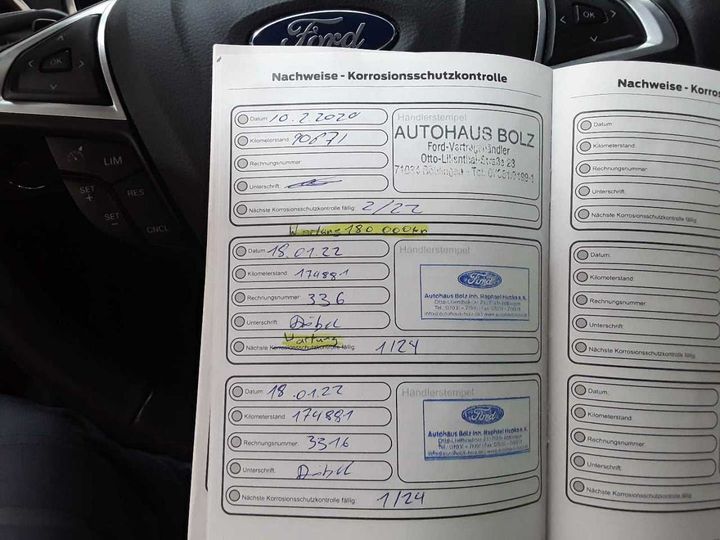 Ford
OK
OK
LIM
SET
+
RES
SET
-
CNCL
Nachweise - Korrosionsschutzkontrolle
Datum 10.2.2020
Kilometerstand 90671
Rechnungsnummer
Unterschrift
Nächste Korrosionsschutzkontrolle fällig: 2/22
Händlerstempel
AUTOHAUS BOLZ
Ford-Vertragshändler
Otto-Lilienthal-Straße 23
Wartung 180 000km
Datum 18.01.22
Kilometerstand 174881
Rechnungsnummer: 336
Unterschrift
Wartung
Nächste Korrosionsschutzkontrolle fällig: 1/24
Händlerstempel
Ford
Autohaus Bolz Inh. Raphael
Datum: 18.01.22
Kilometerstand: 174881
Rechnungsnummer: 3316
Unterschrift:
Nächste Korrosionsschutzkontrolle fällig: 1/24
Händlerstempel
Ford
Autohaus Bolz Inh. Raphael
Nachweise - Korros
Datum:
Kilometerstand:
Rechnungsnummer:
Unterschrift:
Nächste Korrosionsschutzkontrolle fällig:
Datum:
Kilometerstand:
Rechnungsnummer:
Unterschrift:
Nächste Korrosionsschutzkontrolle fällig:
Datum:
Kilometerstand:
Rechnungsnummer:
Unterschrift:
Nächste Korrosionsschutzkontrolle fällig: